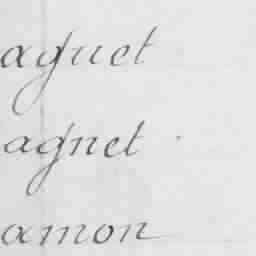 aguet
agnet
amon